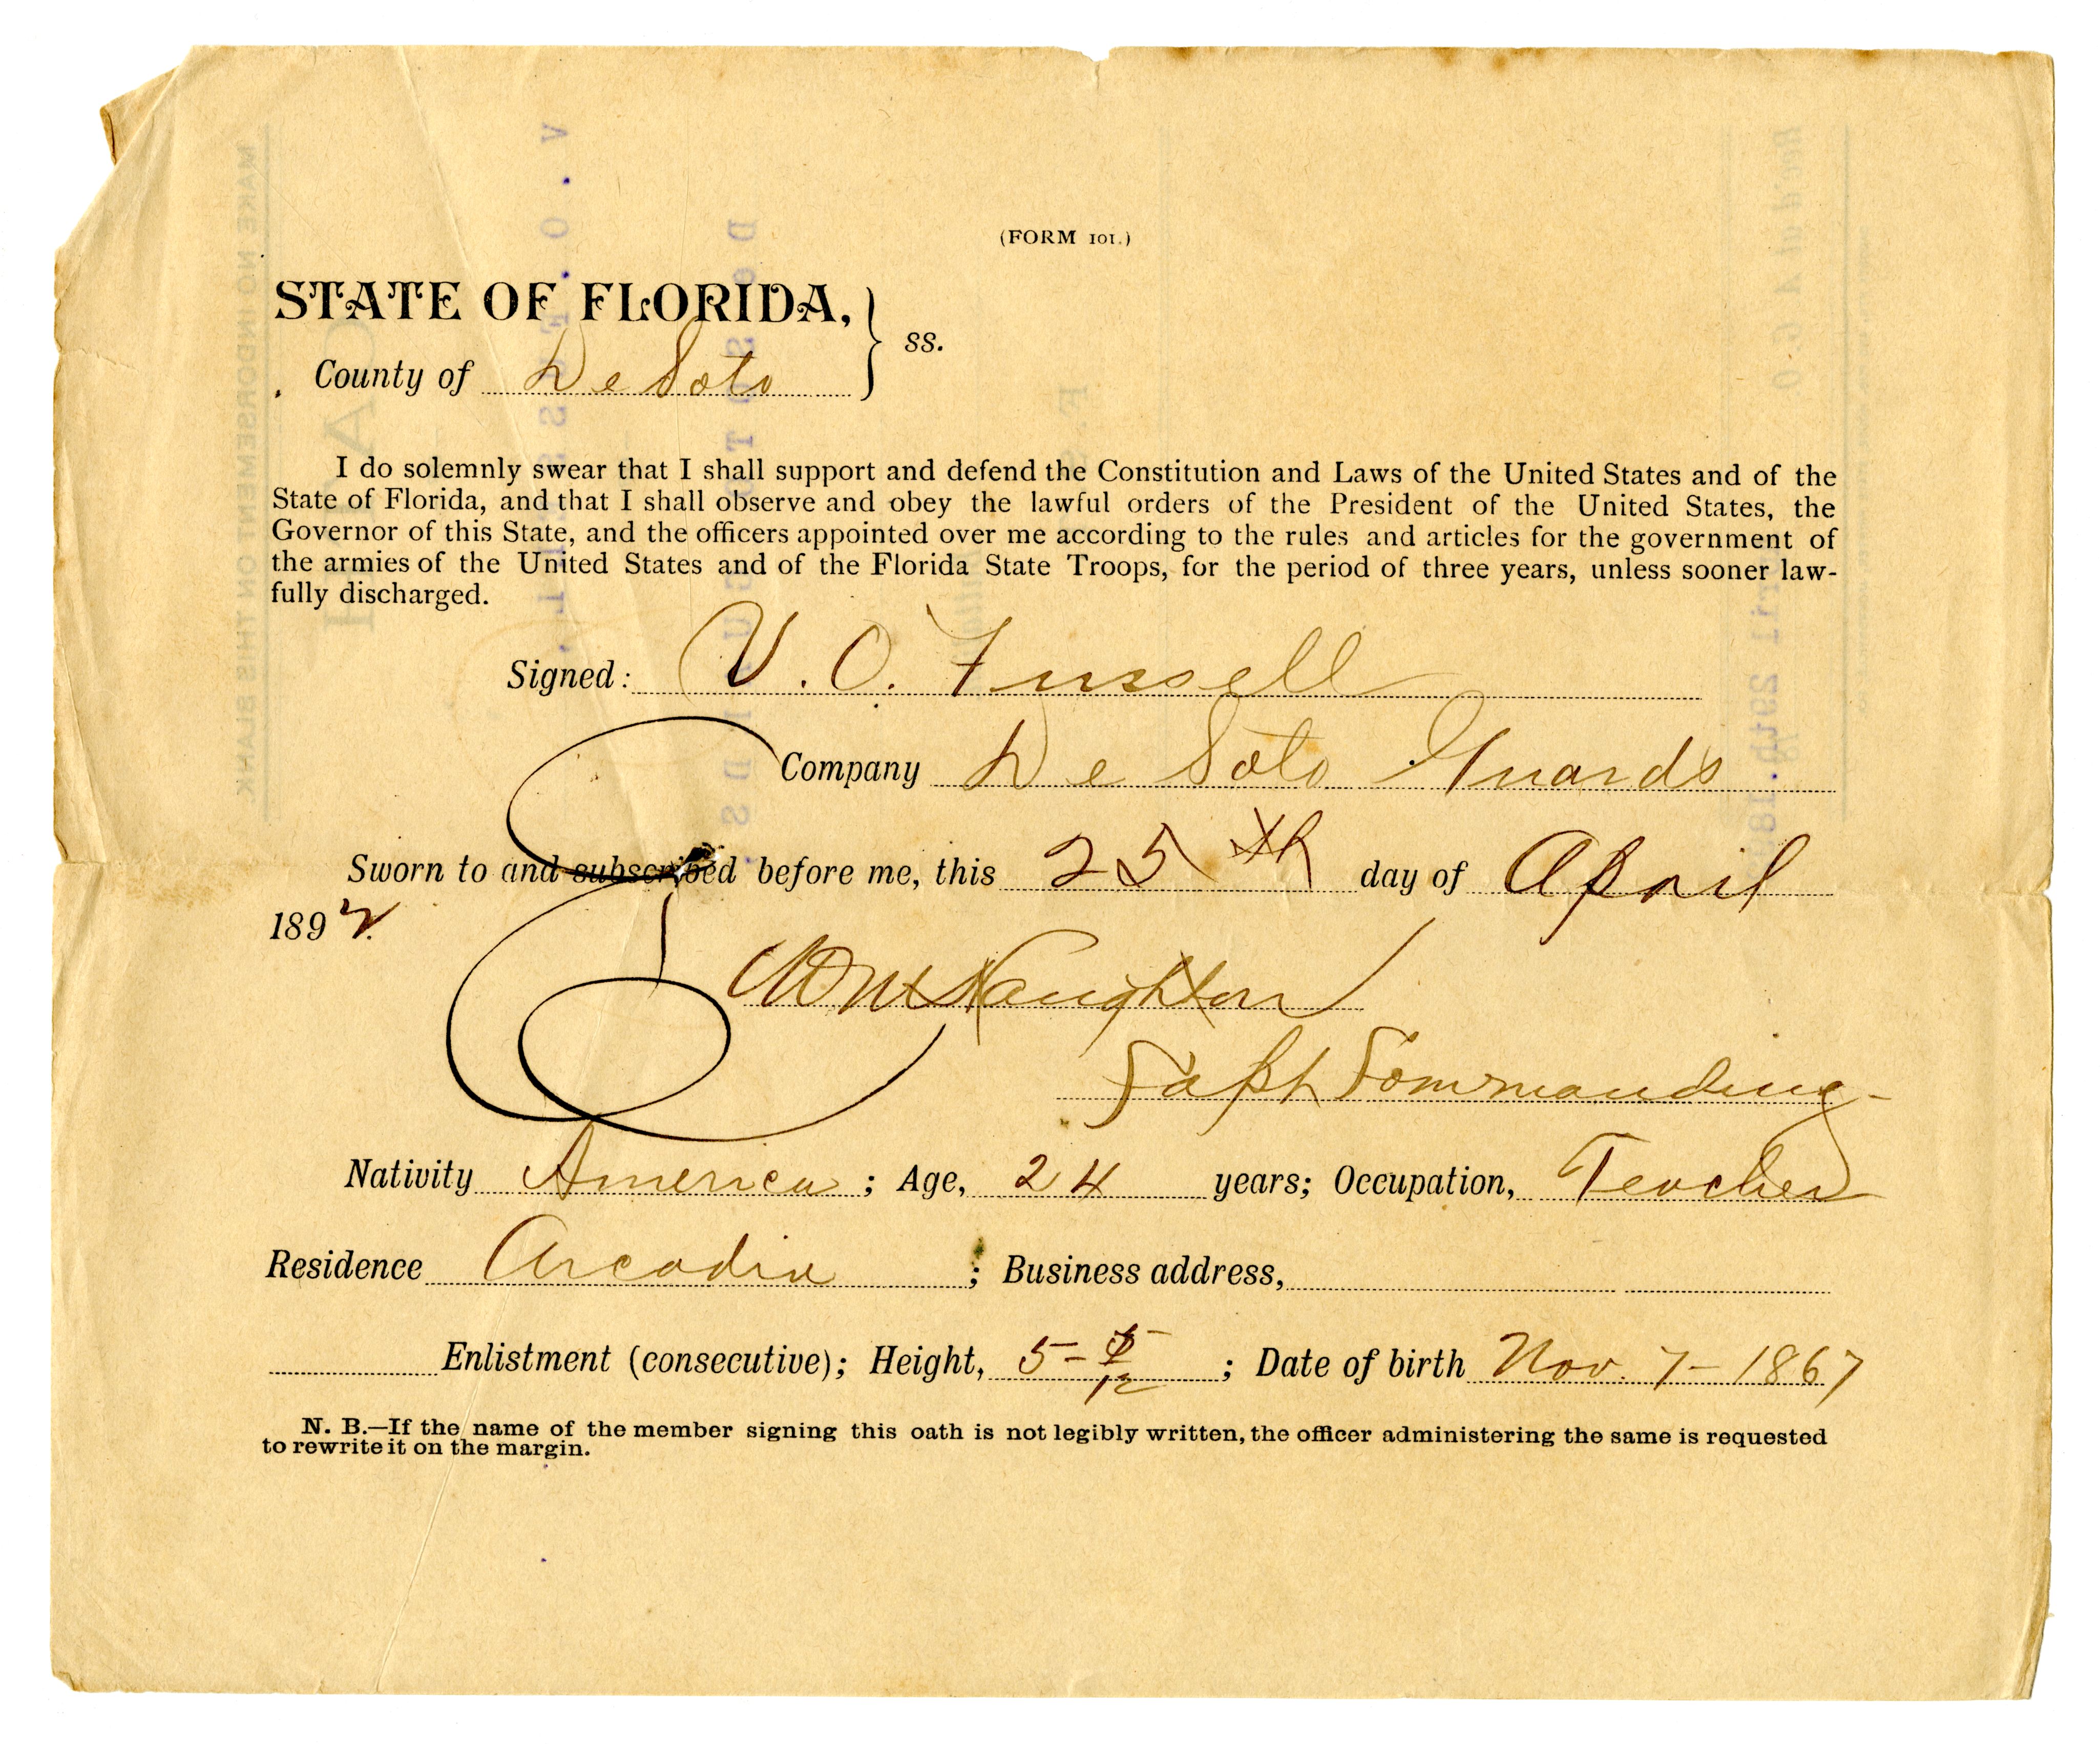 (FORM 101.)
STATE OF FLORIDA,
ss.
County of De Soto
I do solemnly swear that I shall support and defend the Constitution and Laws of the United States and of the
State of Florida, and that I shall observe and obey the lawful orders of the President of the United States, the
Governor of this State, and the officers appointed over me according to the rules and articles for the government of
the armies of the United States and of the Florida State Troops, for the period of three years, unless sooner law-
fully discharged.
Signed: V. O. Fussell
Company De Soto Guards
Sworn to and subscribed before me, this 25th day of April
1892.
McNaughton
Capt Commanding
Nativity America ; Age, 24 years; Occupation, Teacher
Residence Arcadia ; Business address,
Enlistment (consecutive); Height, 5- 5/12 ; Date of birth Nov. 7- 1867
N. B.—If the name of the member signing this oath is not legibly written, the officer administering the same is requested
to rewrite it on the margin.